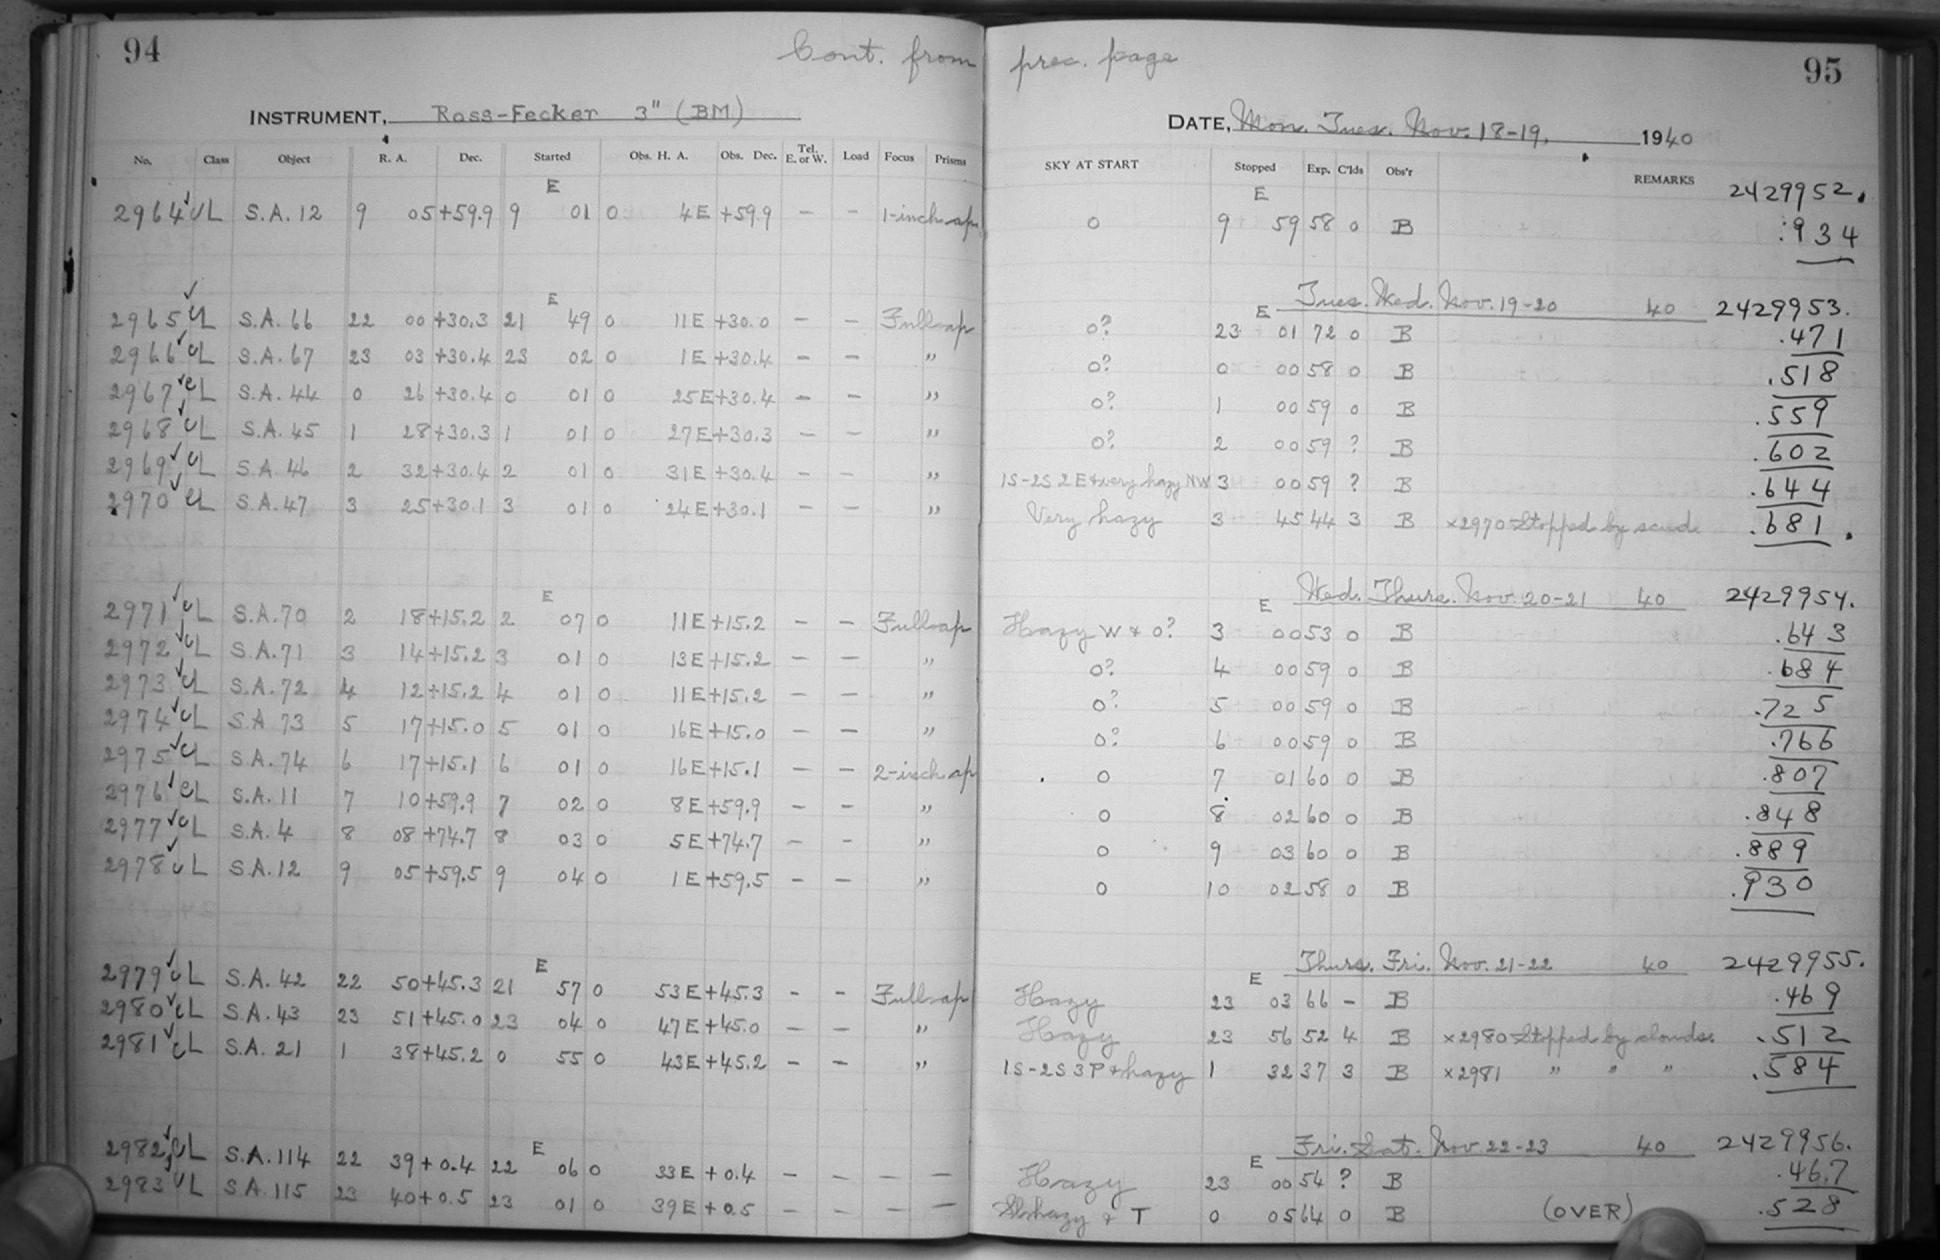 94 Cont. from prec. page 95
INSTRUMENT, Ross-Fecker 3" (BM) DATE, Mon. Tues. Nov. 18-19, 1940
No. Class Object R. A. Dec. Started Obs. H. A. Obs. Dec. Tel. E. or W. Load Focus Prisms SKY AT START Stopped Exp. C'lds Obs'r REMARKS 2429952.
E E
2964 L S.A. 12 9 05 +59.9 9 01 0 4E +59.9 — — 1-inch ap. 0 9 59 58 0 B .934
E E Tues. Wed. Nov. 19-20 40 2429953.
2965 L S.A. 66 22 00 +30.3 21 49 0 11E +30.0 — — Full ap 0? 23 01 72 0 B .471
2966 L S.A. 67 23 03 +30.4 23 02 0 1E +30.4 — — " 0? 0 00 58 0 B .518
2967 L S.A. 44 0 26 +30.4 0 01 0 25E +30.4 — — " 0? 1 00 59 0 B .559
2968 L S.A. 45 1 28 +30.3 1 01 0 27E +30.3 — — " 0? 2 00 59 ? B .602
2969 L S.A. 46 2 32 +30.4 2 01 0 31E +30.4 — — " 1S-2S 2E + very hazy NW 3 00 59 ? B .644
2970 L S.A. 47 3 25 +30.1 3 01 0 24E +30.1 — — " Very hazy 3 45 44 3 B ×2970 Stopped by scud. .681
E E Wed. Thurs. Nov. 20-21 40 2429954.
2971 L S.A. 70 2 18 +15.2 2 07 0 11E +15.2 — — Full ap Hazy W & 0? 3 00 53 0 B .643
2972 L S.A. 71 3 14 +15.2 3 01 0 13E +15.2 — — " 0? 4 00 59 0 B .684
2973 L S.A. 72 4 12 +15.2 4 01 0 11E +15.2 — — " 0? 5 00 59 0 B .725
2974 L S.A 73 5 17 +15.0 5 01 0 16E +15.0 — — " 0? 6 00 59 0 B .766
2975 L S.A. 74 6 17 +15.1 6 01 0 16E +15.1 — — 2-inch ap 0 7 01 60 0 B .807
2976 L S.A. 11 7 10 +59.9 7 02 0 8E +59.9 — — " 0 8 02 60 0 B .848
2977 L S.A. 4 8 08 +74.7 8 03 0 5E +74.7 — — " 0 9 03 60 0 B .889
2978 L S.A. 12 9 05 +59.5 9 04 0 1E +59.5 — — " 0 10 02 58 0 B .930
E E Thurs. Fri. Nov. 21-22 40 2429955.
2979 L S.A. 42 22 50 +45.3 21 57 0 53E +45.3 — — Full ap Hazy 23 03 66 — B .469
2980 L S.A. 43 23 51 +45.0 23 04 0 47E +45.0 — — " Hazy 23 56 52 4 B ×2980 Stopped by clouds. .512
2981 L S.A. 21 1 38 +45.2 0 55 0 43E +45.2 — — " 1S-2S 3P + hazy 1 32 37 3 B ×2981 " " " .584
E E Fri. Sat. Nov 22-23 40 2429956.
2982 L S.A. 114 22 39 +0.4 22 06 0 33E +0.4 — — — — Hazy 23 00 54 ? B .467
2983 L S.A. 115 23 40 +0.5 23 01 0 39E +0.5 — — — — hazy + T 0 05 64 0 B (OVER) .528